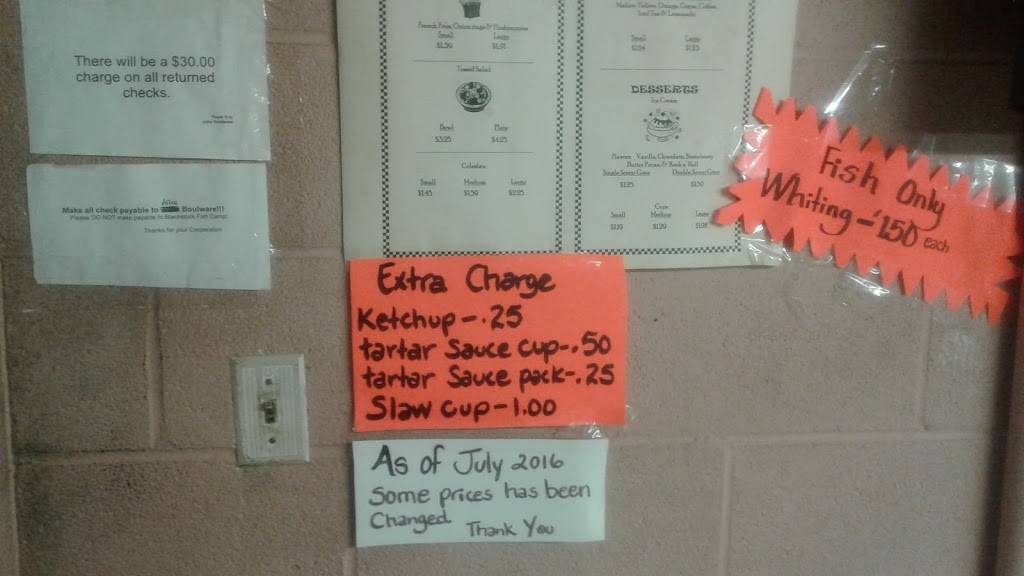 There will be a $30.00
charge on all returned
checks.
Thank You
Make all check payable to Boulware!!!
Please DO NOT make payable to Blackstock Fish Camp!
Thanks for your Cooperation
French Fries, Onion rings & Hushpuppies
Small Large
Tossed Salad
Bowl Plate
$3.25 $4.25
Coleslaw
Small Medium Large
$1.45 $1.59 $2.25
Iced Tea & Lemonade
Small Large
DESSERTS
Ice Cream
Flavors: Vanilla, Chocolate, Strawberry
Butter Pecan, & Rock n' Roll
Single Scoop Cone Double Scoop Cone
Cups
Small Medium Large
Fish Only
Whiting - 1.50 each
Extra Charge
Ketchup - .25
tartar Sauce cup - .50
tartar Sauce pack - .25
Slaw cup - 1.00
As of July 2016
Some prices has been
Changed Thank You